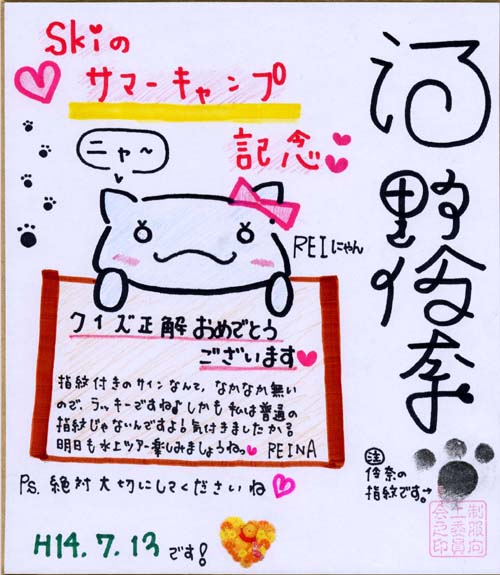 Skiの
サマーキャンプ
記念
ニャ〜
REIにゃん
クイズ正解おめでとう
ございます
指紋付きのサインなんて、なかなか無い
ので、ラッキーですね♪しかも私は普通の
指紋じゃないんですよ!気付きましたか?
明日も水上ツアー楽しみましょうね。
REINA
Ps. 絶対大切にしてくださいね
H14.7.13です!
河野伶奈
注
伶奈の
指紋です。→
制服向
上委員
会之印